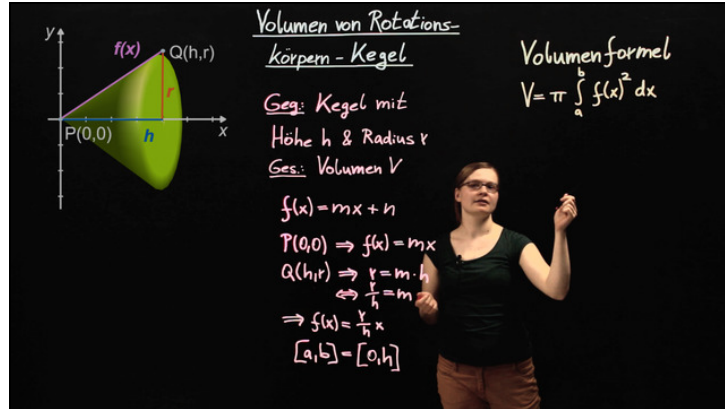 Volumen von Rotations-
körpern - Kegel
y
f(x)
Q(h,r)
r
P(0,0)
h
x
Geg.: Kegel mit
Höhe h & Radius r
Ges.: Volumen V
f(x) = mx + n
P(0,0) ⇒ f(x) = mx
Q(h,r) ⇒ r = m · h
⇔ r/h = m
⇒ f(x) = r/h x
[a,b] = [0,h]
Volumenformel
V = π ∫_a^b f(x)² dx